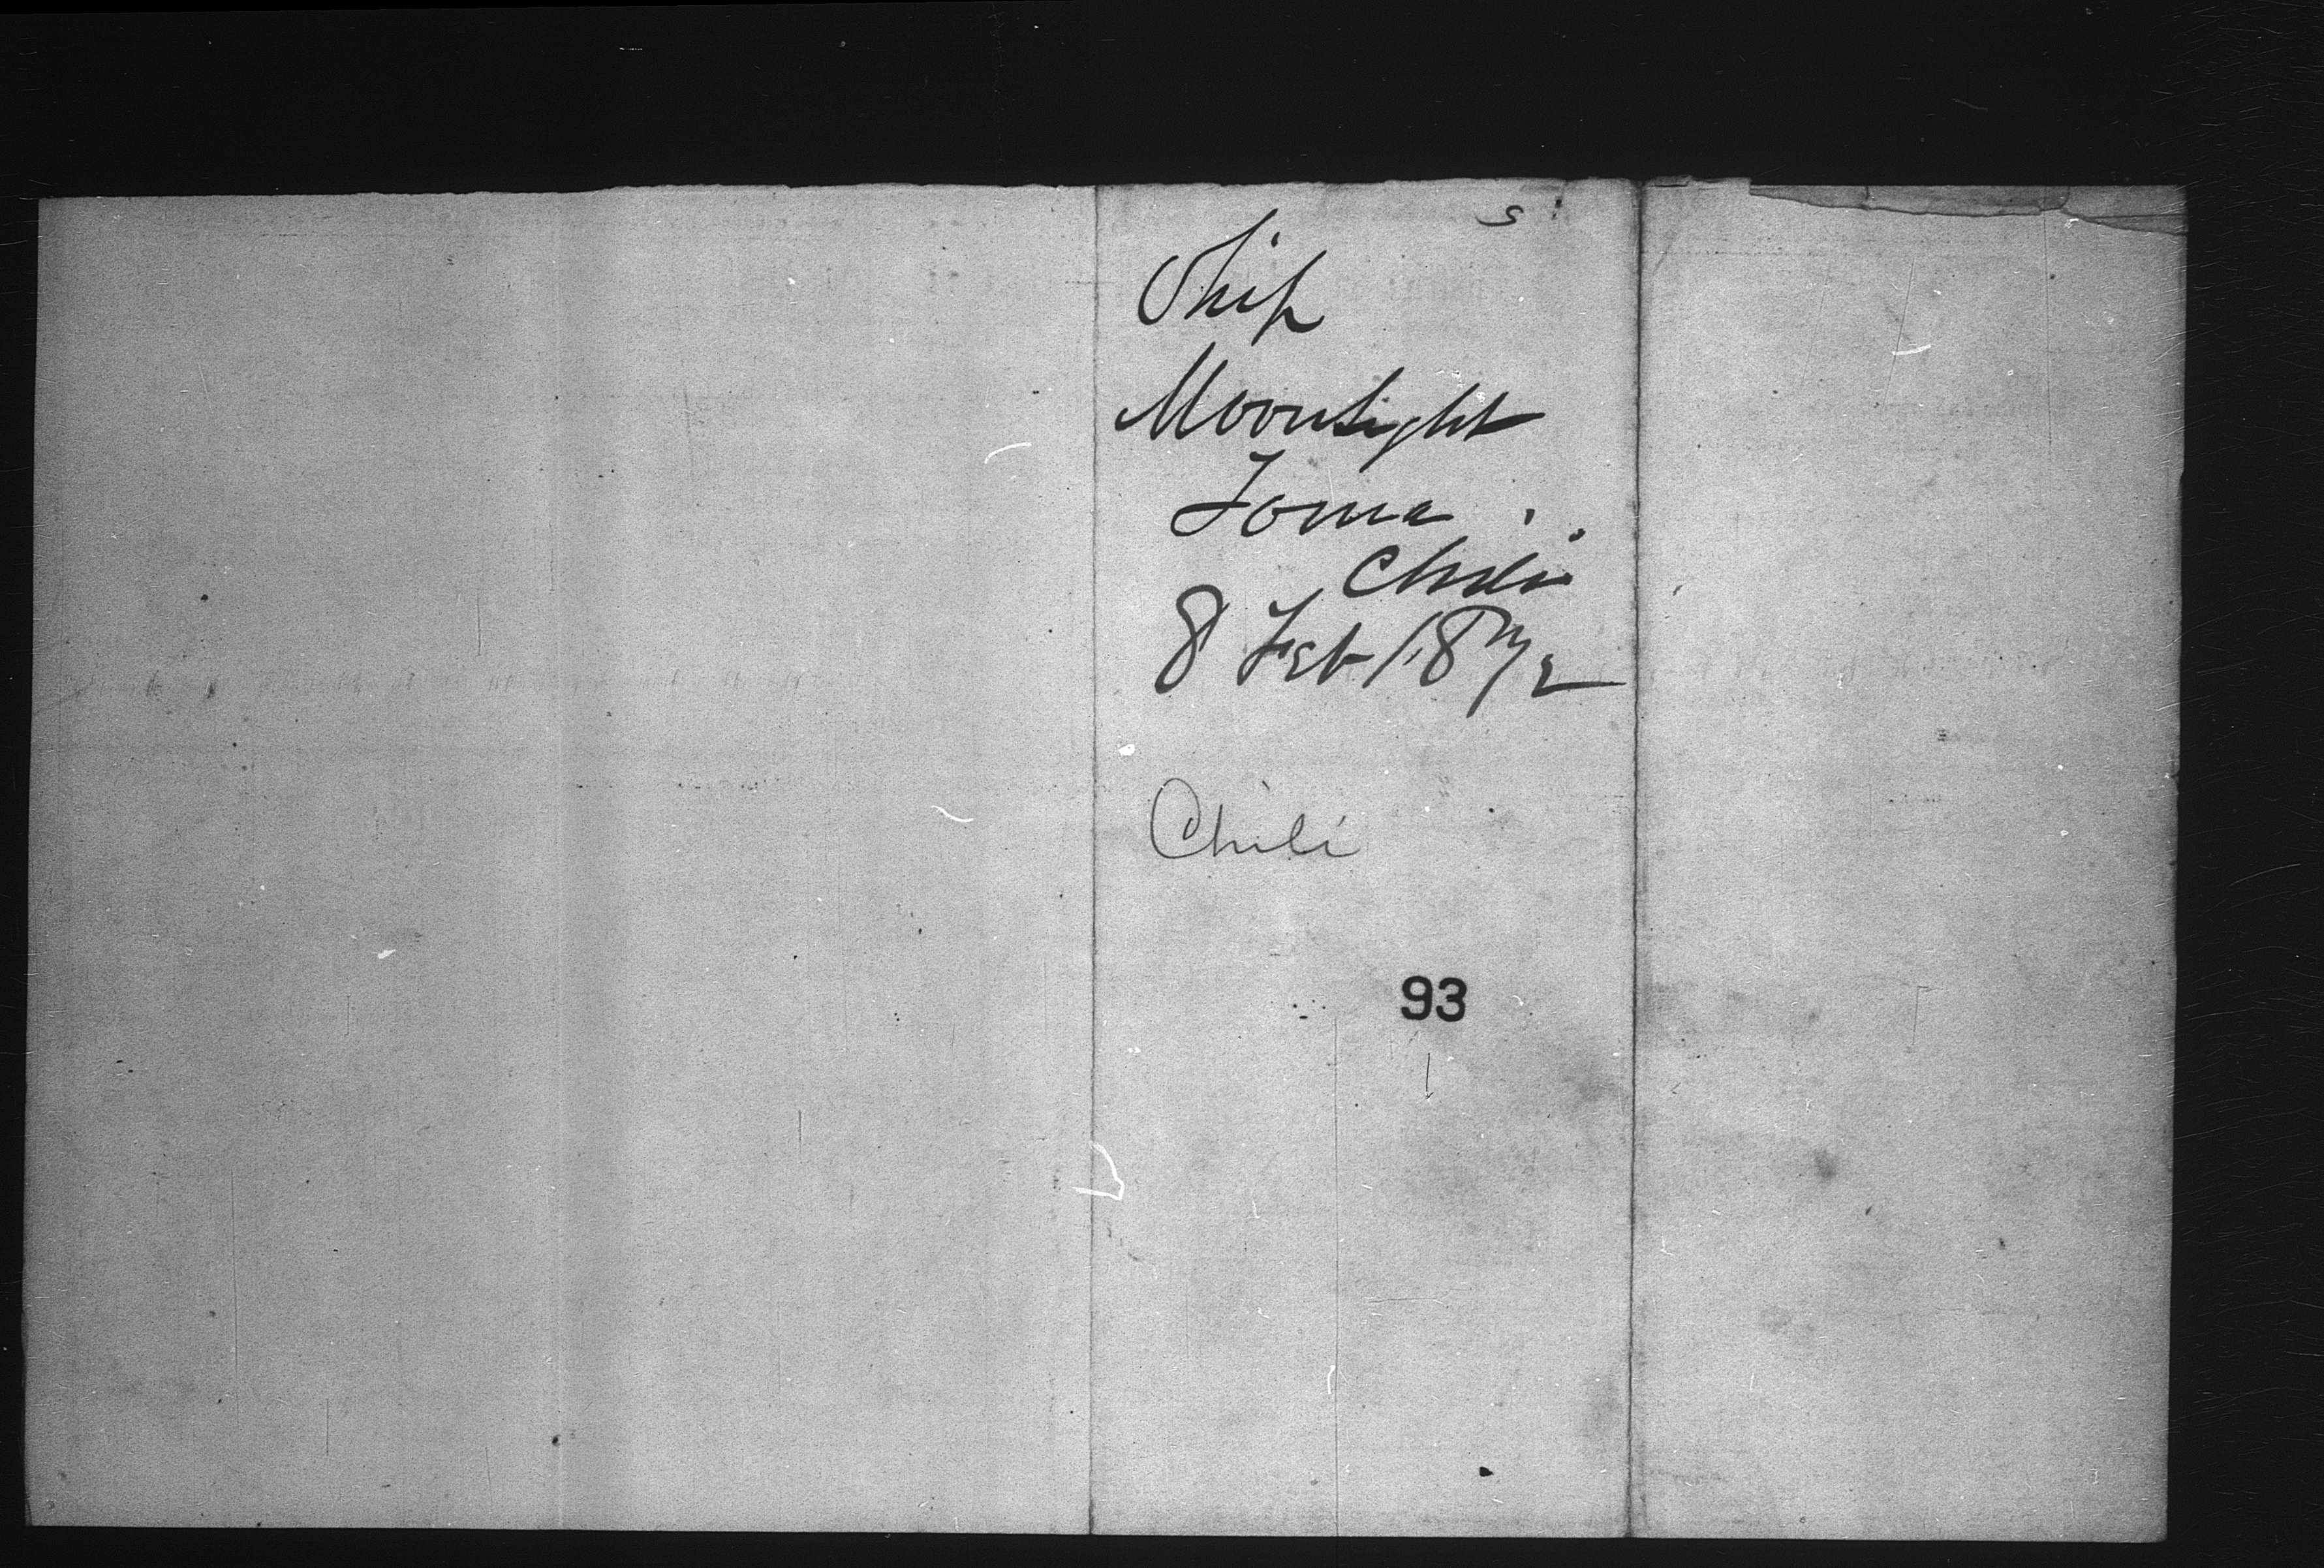 s
Ship
Moonlight
Tome
Chili
8 Feb 1872
Chili
93